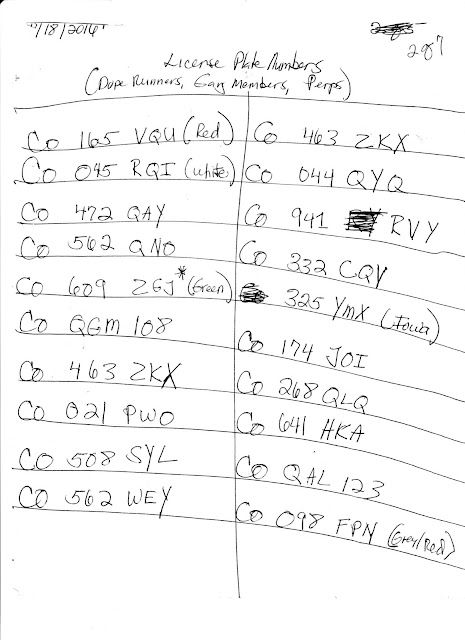 7/18/2016
287
License Plate Numbers
(Dope Runners, Gang Members, Perps)
Co 165 VQU (Red)
Co 045 RQI (white)
Co 472 QAY
Co 562 QNO
Co 609 ZGJ* (Green)
Co QGM 108
Co 463 ZKX
Co 021 PWO
Co 508 SYL
Co 562 WEY
Co 463 ZKX
Co 044 QYQ
Co 941 RVY
Co 332 CQV
325 YMX (Iowa)
Co 174 JOI
Co 268 QLQ
Co 641 HKA
Co QAL 123
Co 098 FPN (Grey/Red)